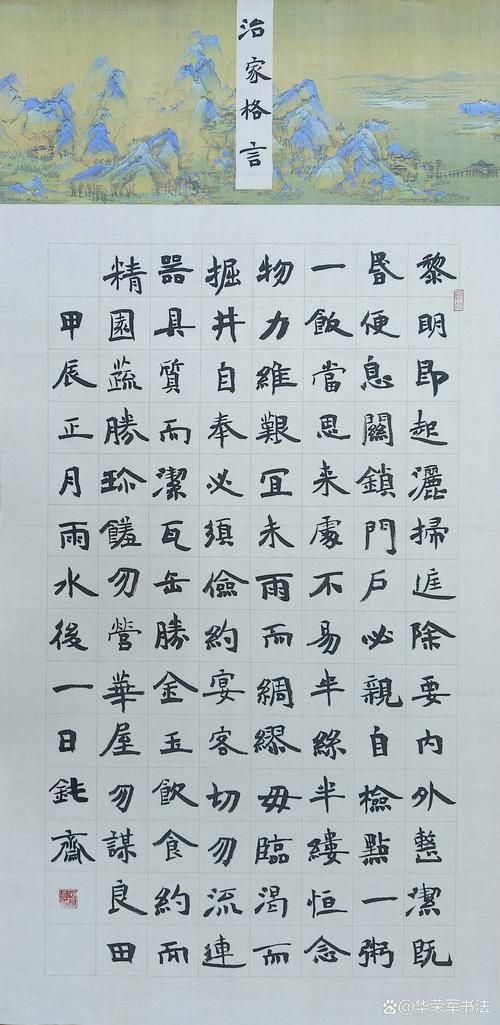 治家格言
黎明即起灑掃庭除要内外整潔既
昏便息關鎖門户必親自檢點一粥
一飯當思来處不易半絲半縷恒念
物力維艱宜未雨而綢繆毋臨渴而
掘井自奉必須儉約宴客切勿流連
器具質而潔瓦缶勝金玉飲食約而
精園蔬勝珍饈勿營華屋勿謀良田
甲辰正月雨水後一日鈍齋
@华荣军书法